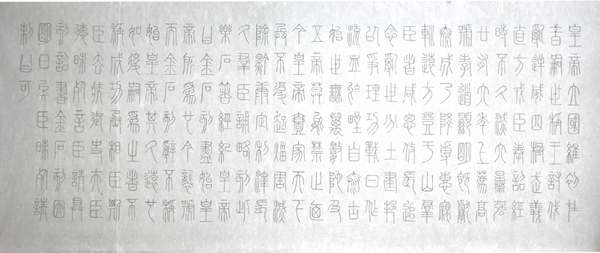 皇帝立國維初在
昔嗣世稱王討伐
亂逆威動四極武義
直方戎臣奉詔經
時不久滅六暴強
廿有六年上薦高
號孝道顯明既獻
泰成乃降專惠親
巡遠方登于繹山群
臣從者咸思攸長追
念亂世分土建邦
以開爭理功戰日作
流血於野自泰古
始世無萬數陀及
五帝莫能禁止廼
今皇帝壹家天下
兵不復起災害滅
除黔首康定利澤長
久群臣誦略刻此
樂石以著經紀皇帝
曰金石刻盡始皇
帝所為也今襲號
而金石刻辭不稱
始皇帝其久遠也
如後嗣為之者不
稱成功盛德丞相臣斯
臣去疾御史大夫臣
德昧死言臣請具
刻詔書金石刻因
明白矣臣昧死請
制曰可